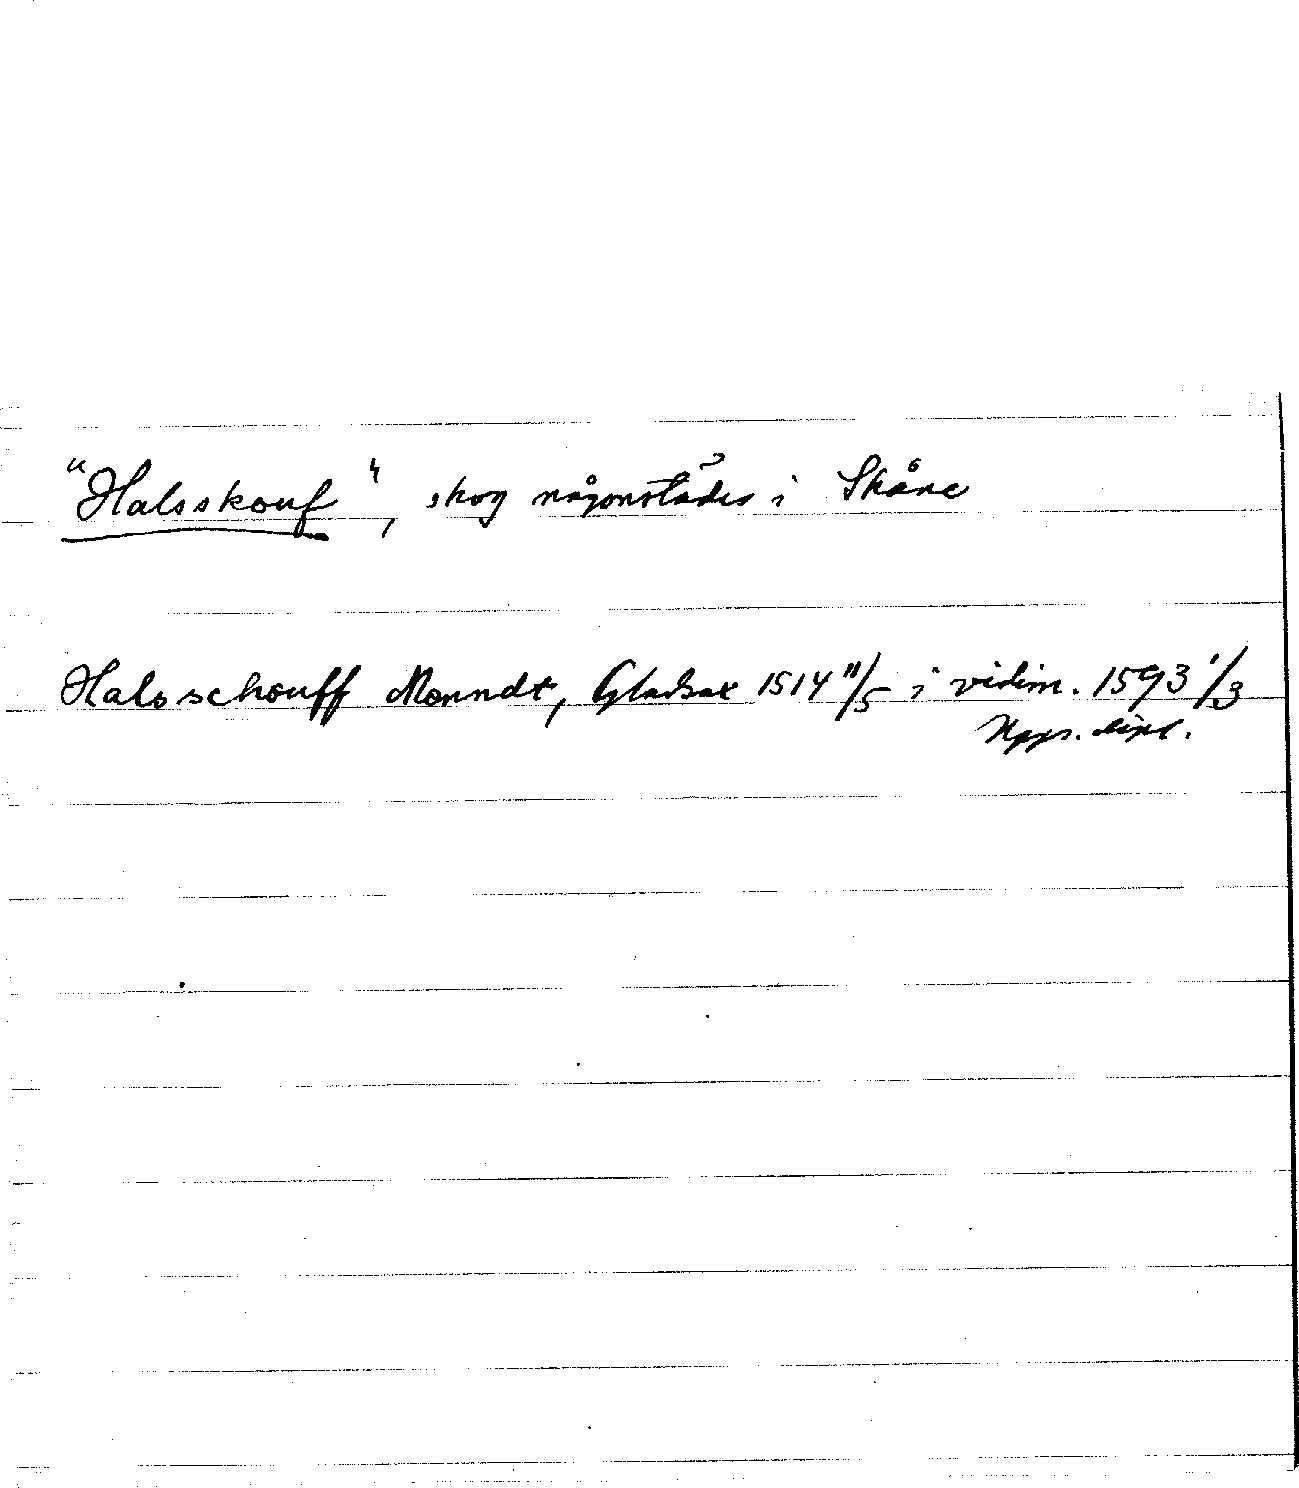 "Halsskouf", skog någonstädes i Skåne
Halsschouff Monndt, Gladsax 1514 11/5 i vidim. 1593 1/3
Upps. dipl.